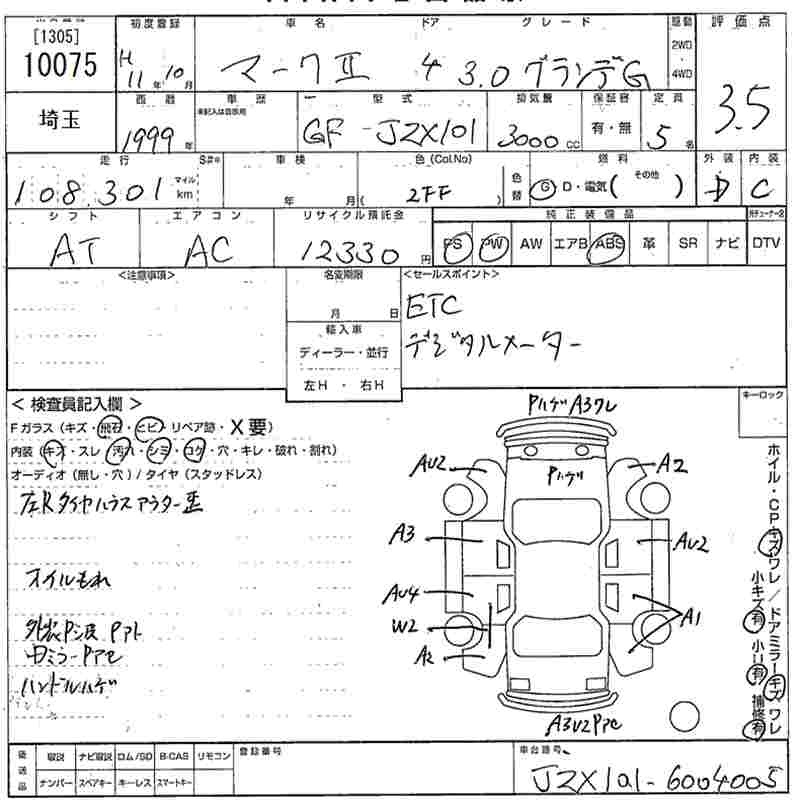 [1305]
10075
埼玉
初度登録 車名 ドア グレード 駆動 評価点
H 11年10月 マークⅡ 4 3.0 グランデG 2WD・4WD 3.5
西暦 車歴 型式 排気量 保証書 定員
1999年 未記入は自家用 GF-JZX101 3000cc 有・無 5名
走行 S#※ 車検 色(Col.No) 燃料 外装 内装
108,301 マイル km 年 月 ( 2FF ) 色替 G D・電気( その他 ) D C
シフト エアコン リサイクル預託金 純正装備品
AT AC 12330円 PS PW AW エアB ABS 革 SR ナビ DTV
<注意事項> 名変期限 <セールスポイント>
月 日 ETC
輸入車 デジタルメーター
ディーラー・並行
左H・右H
キーロック
<検査員記入欄>
Fガラス(キズ・飛石・ヒビ・リペア跡・X要)
内装(キズ・スレ・汚れ・シミ・コゲ・穴・キレ・破れ・割れ)
オーディオ(無し・穴)/タイヤ(スタッドレス)
左Rタイヤハウスアウター歪
オイルもれ
ハンドルハゲ
Pハゲ A3ワレ
Pハゲ
AU2 A2
A3 AU2
AU4 A1
W2
A2
ホイル・CPキズワレ/ドアミラーキズワレ
小キズ有 小U有 補修有
後送品 取説 ナビ取説 ロム/SD B-CAS リモコン 登録番号 車台番号
ナンバー スペアキー キーレス スマートキー JZX101-6004005